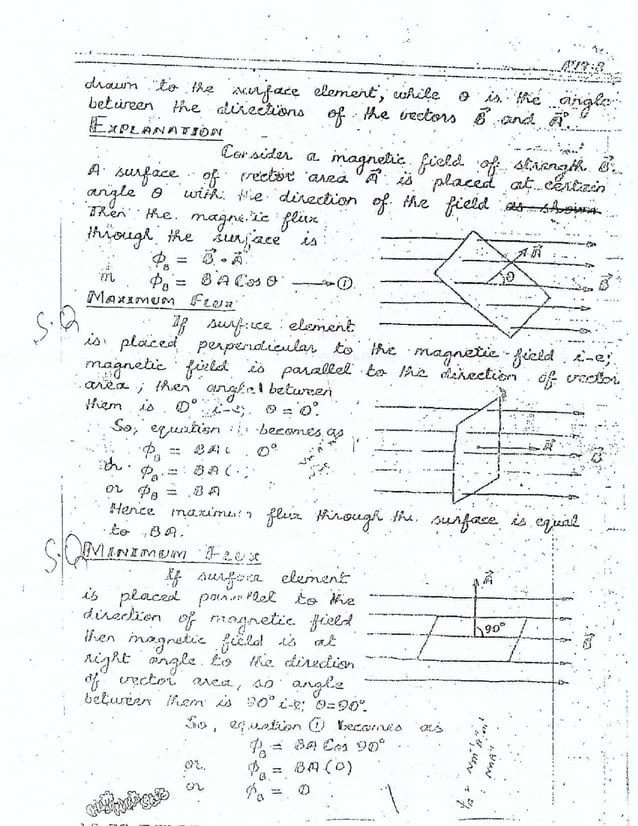 drawn to the surface element, while θ is the angle
between the directions of the vectors B⃗ and A⃗.
EXPLANATION
Consider a magnetic field of strength B⃗.
A surface of vector area A⃗ is placed at certain
angle θ with the direction of the field as shown
Then the magnetic flux
through the surface is
ϕB = B⃗ · A⃗
or ϕB = BA Cos θ → ①
A⃗
θ
B⃗
MAXIMUM FLUX
S.Q
If surface element
is placed perpendicular to the magnetic field i-e;
magnetic field is parallel to the direction of vector
area, then angle between
them is 0° i-e; θ = 0°.
So, equation becomes as
ϕB = BA 0°
or ϕB = BA (
or ϕB = BA
A⃗
B⃗
Hence maximum flux through the surface is equal
to BA.
S.Q MINIMUM FLUX
If surface element
is placed parallel to the
direction of magnetic field
then magnetic field is at
right angle to the direction
of vector area, so angle
between them is 90° i-e; θ=90°.
A⃗
90°
B⃗
So, equation ① becomes as
ϕB = BA Cos 90°
or ϕB = BA (0)
or ϕB = 0